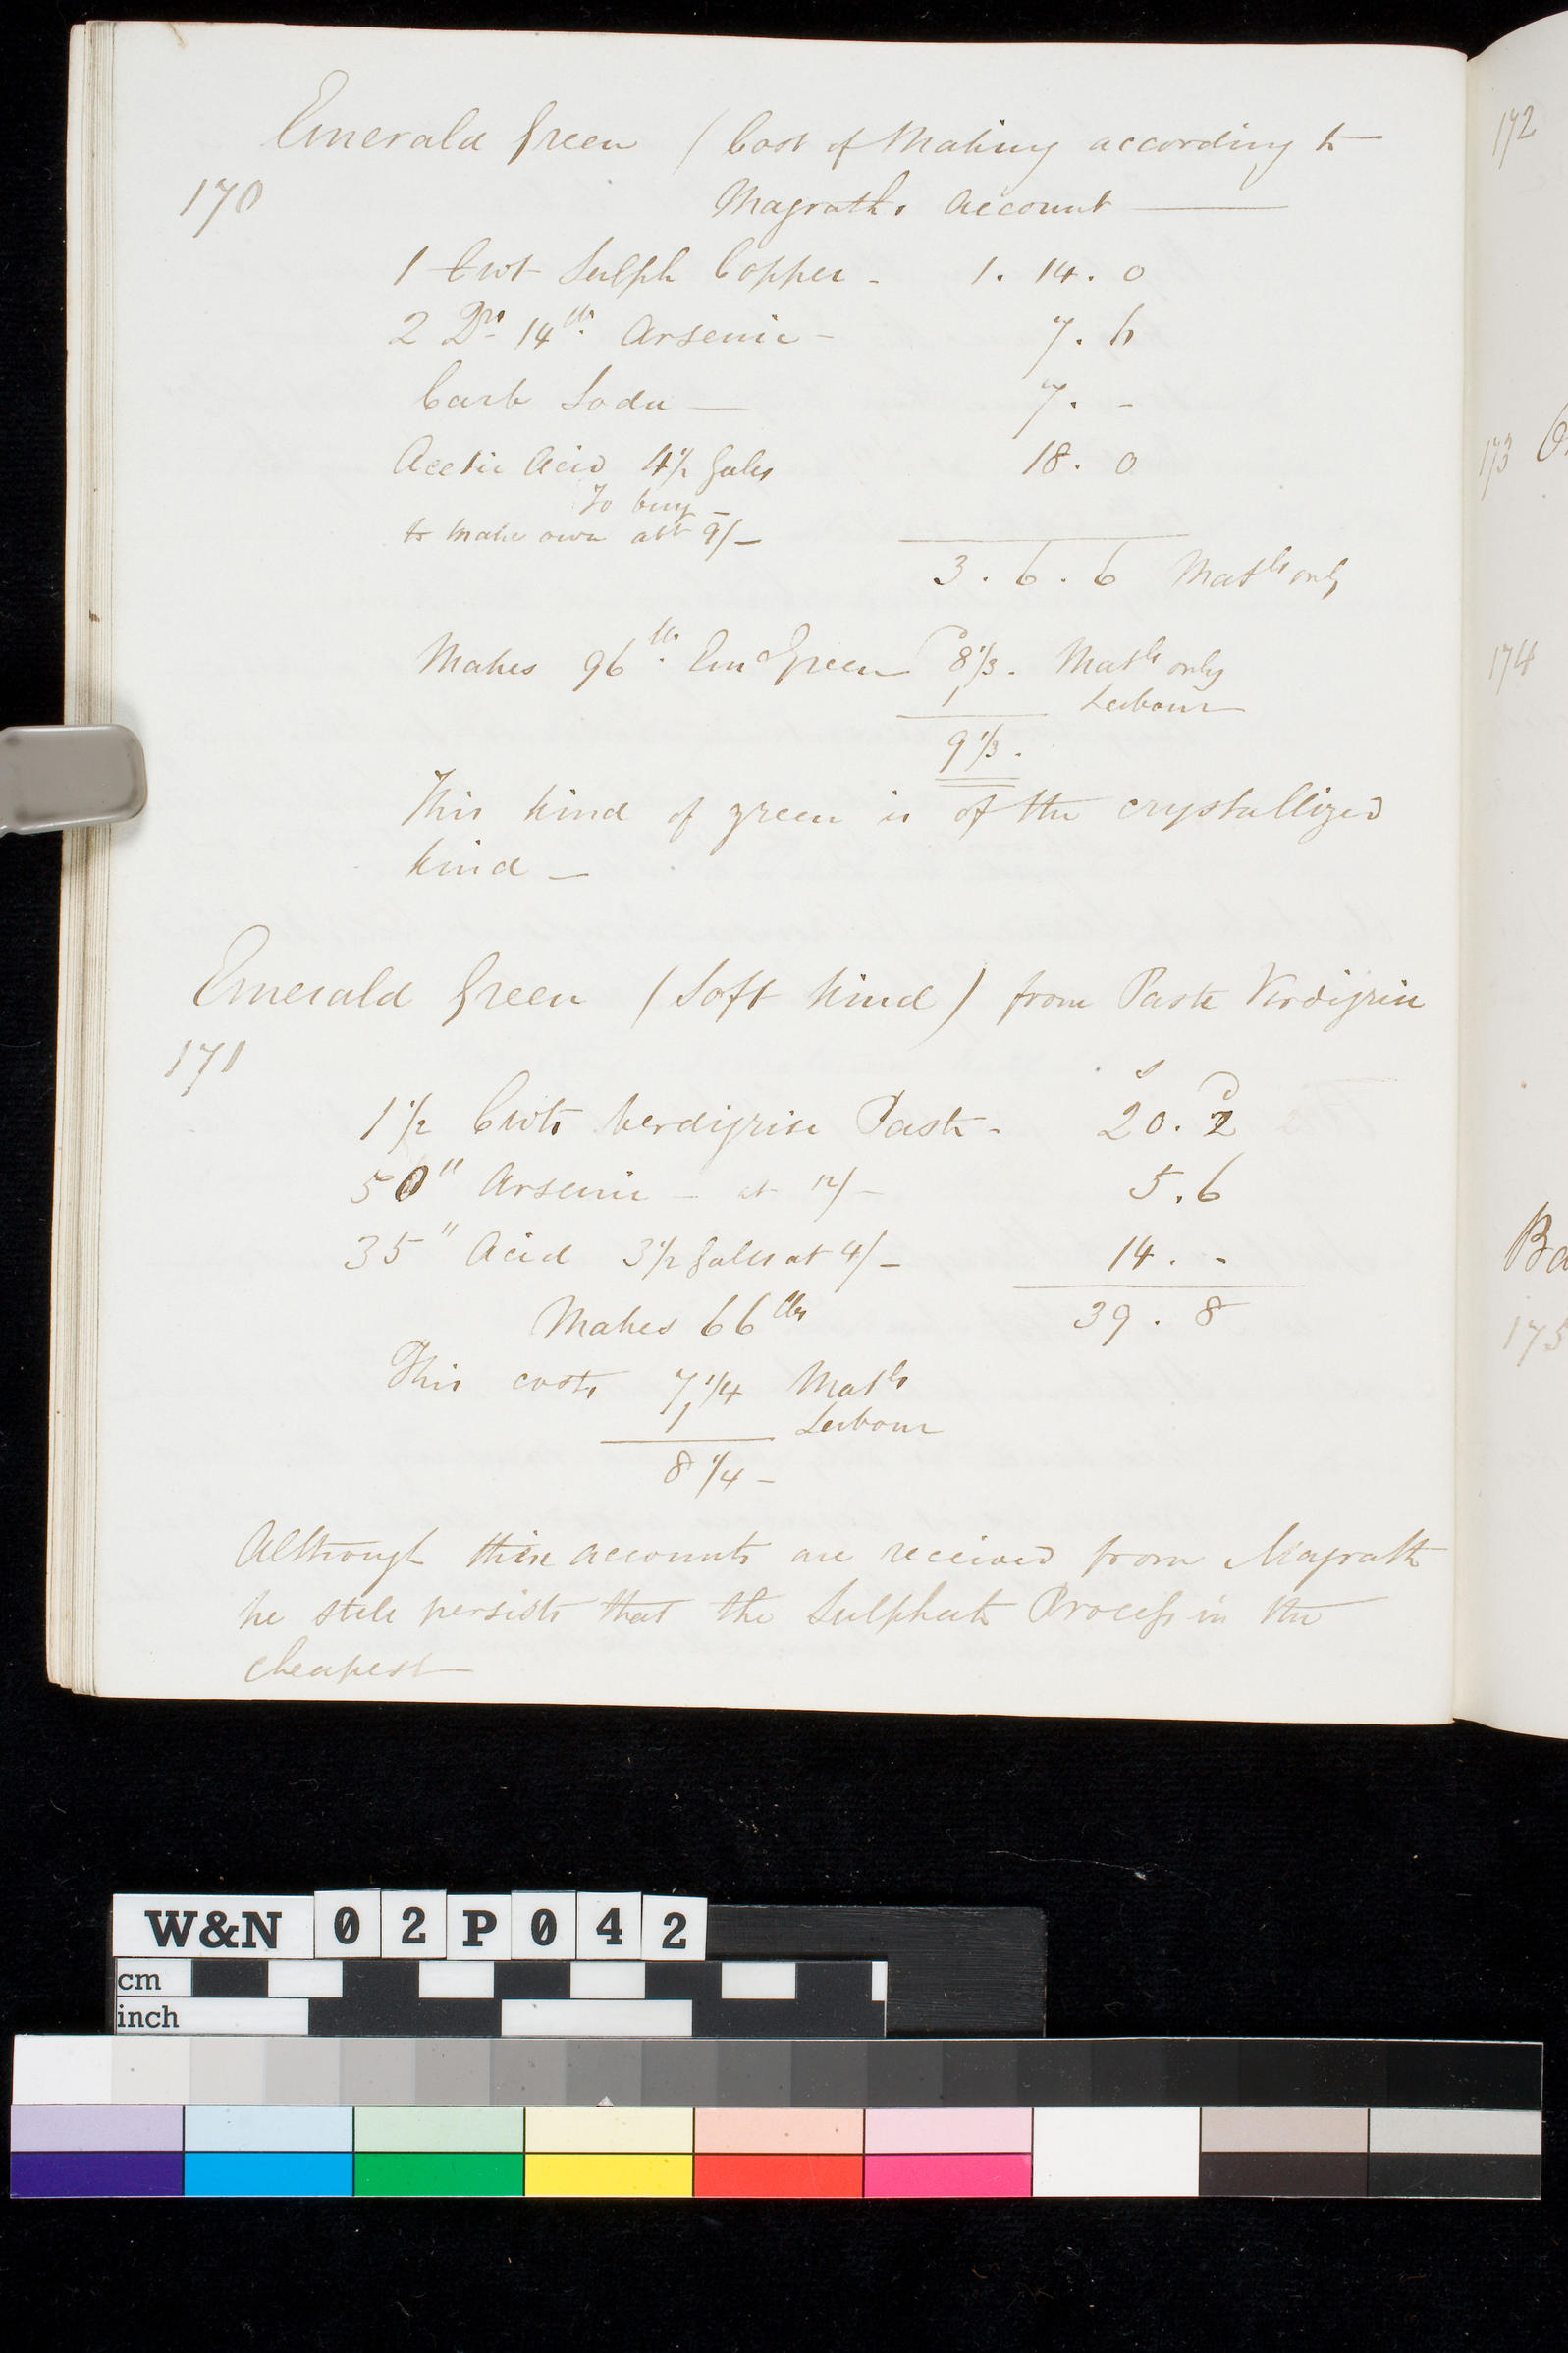 Emerald Green ( Cost of Making according to
170
Magraths account
1 Cwt Sulph Copper - 1. 14. 0
2 Qrs 14lb. Arsenic - 7. 6
Carb Soda — 7. -
Acetic Acid 4½ Galls 18. 0
To buy -
to make own abt 9/-
3. 6. 6 Matls only
Makes 96lb. Emd Green 8⅓. Matls only
1 Labour
9⅓.
This kind of green is of the crystallized
kind -
Emerald Green (Soft kind) from Paste Verdigris
171
s d
1½ Cwts Verdigrise Paste - 20. 2
50" Arsenic - at 12/- 5. 6
35" Acid 3½ Galls at 4/- 14. -
Makes 66lbs 39. 8
This costs 7¼ Matls
1 Labour
8¼ -
Although these accounts are received from Magrath
he still persists that the Sulphate Process is the
cheapest
172
173
174
Ba
175
W&N 0 2 P 0 4 2
cm
inch